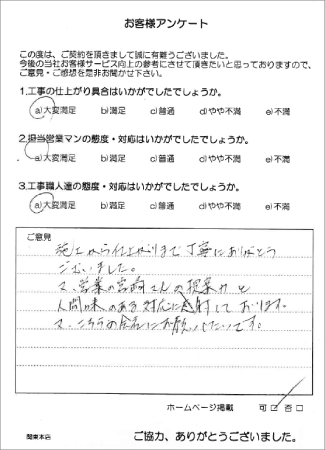 お客様アンケート
この度は、ご契約を頂きまして誠に有難うございました。
今後の当社お客様サービス向上の参考にさせて頂きたいと思っておりますので、
ご意見・ご感想を是非お聞かせ下さい。
1.工事の仕上がり具合はいかがでしたでしょうか。
a)大変満足 b)満足 c)普通 d)やや不満 e)不満
2.担当営業マンの態度・対応はいかがでしたでしょうか。
a)大変満足 b)満足 c)普通 d)やや不満 e)不満
3.工事職人達の態度・対応はいかがでしたでしょうか。
a)大変満足 b)満足 c)普通 d)やや不満 e)不満
ご意見
施工から仕上がりまで丁寧にありがとう
ございました。
又、営業の宮崎さんの提案力と
人間味のある対応に感謝しております。
又、こちらの会社にお願いしたいです。
ホームページ掲載 可□ 否□
関東本店
ご協力、ありがとうございました。